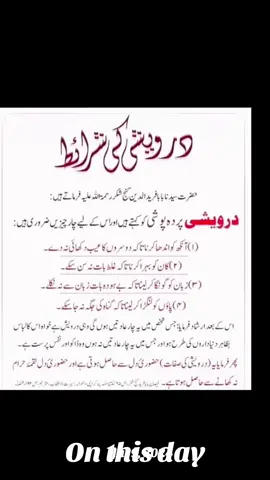 درویشی کی شرائط
حضرت سیدنا بابا فرید الدین گنج شکر رحمۃ اللہ علیہ فرماتے ہیں:
درویشی پردہ پوشی کو کہتے ہیں اور اس کے لیے چار چیزیں ضروری ہیں:
(۱) آنکھ کو اندھا کرنا تاکہ دوسروں کا عیب دکھائی نہ دے۔
(۲) کان کو بہرا کرنا تاکہ غلط بات نہ سن سکے۔
(۳) زبان کو گونگا کر لینا تاکہ بے ہودہ بات زبان سے نہ نکلے۔
(۴) پاؤں کو لنگڑا کر لینا تاکہ گناہ کی جگہ نہ جا سکے۔
اس کے بعد ارشاد فرمایا: جس شخص میں یہ چار عادتیں ہوں گی وہی درویش ہے خواہ اس کا لباس
بظاہر دنیاداروں کی طرح ہو اور جس میں یہ چار عادتیں نہ ہوں وہ ڈاکو اور نفس پرست ہے۔
پھر فرمایا یہ (درویشی کی صفات) حضوری دل سے حاصل ہوتی ہے اور حضوری دل لقمۂ حرام
نہ کھانے سے حاصل ہوتا ہے۔
On this day